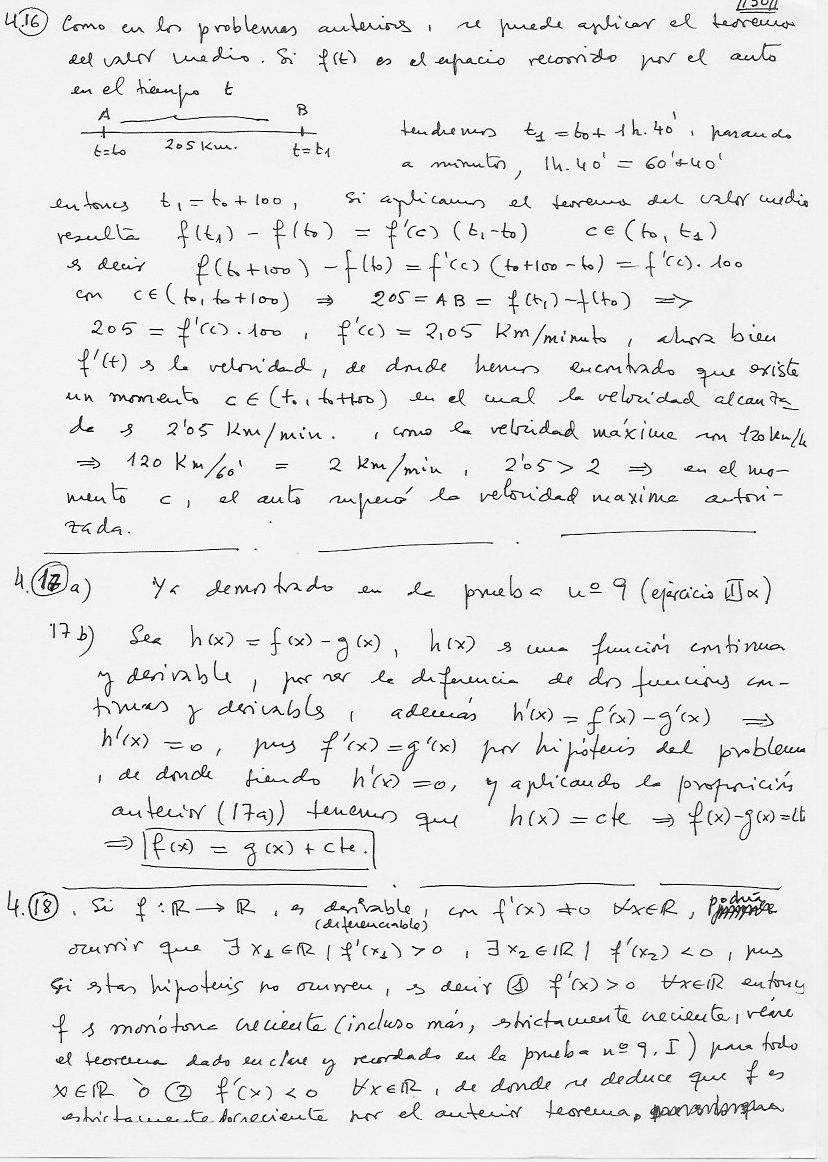 1501
4.16) Como en los problemas anteriores, se puede aplicar el teorema
del valor medio. Si f(t) es el espacio recorrido por el auto
en el tiempo t
A B
t=t0 205 Km. t=t1
tendremos t1 = t0 + 1h. 40', pasando
a minutos, 1h. 40' = 60'+40'
entonces t1 = t0 + 100, si aplicamos el teorema del valor medio
resulta f(t1) - f(t0) = f'(c) (t1-t0) c∈(t0, t1)
es decir f(t0+100) - f(t0) = f'(c) (t0+100-t0) = f'(c). 100
con c∈(t0, t0+100) ⇒ 205 = AB = f(t1)-f(t0) ⇒
205 = f'(c). 100, f'(c) = 2,05 Km/minuto, ahora bien
f'(t) es la velocidad, de donde hemos encontrado que existe
un momento c∈(t0, t0+100) en el cual la velocidad alcanza-
da es 2'05 Km/min., como la velocidad máxima son 120 km/h
⇒ 120 Km/60' = 2 km/min, 2'05 > 2 ⇒ en el mo-
mento c, el auto superó la velocidad maxima autori-
zada.
4.17 a) Ya demostrado en la prueba nº 9 (ejercicio II α)
17 b) Sea h(x) = f(x) - g(x), h(x) es una función continua
y derivable, por ser la diferencia de dos funciones con-
tinuas y derivables, además h'(x) = f'(x) - g'(x) ⇒
h'(x) = 0, pues f'(x) = g'(x) por hipótesis del problema
, de donde siendo h'(x) = 0, y aplicando la proposición
anterior (17a)) tenemos que h(x) = cte ⇒ f(x)-g(x)=cte
⇒ f(x) = g(x) + cte.
4.18. Si f: ℝ → ℝ, es derivable, con f'(x) ≠ 0 ∀x∈ℝ, podría
(diferenciable)
ocurrir que ∃ x1 ∈ ℝ / f'(x1) > 0, ∃ x2 ∈ ℝ / f'(x2) < 0, pues
si estas hipotesis no ocurren, es decir ① f'(x) > 0 ∀x∈ℝ entonces
f es monótona creciente (incluso más, estrictamente creciente, véase
el teorema dado en clase y recordado en la prueba nº 9, I) para todo
x∈ℝ ò ② f'(x) < 0 ∀x∈ℝ, de donde se deduce que f es
estrictamente decreciente por el anterior teorema.